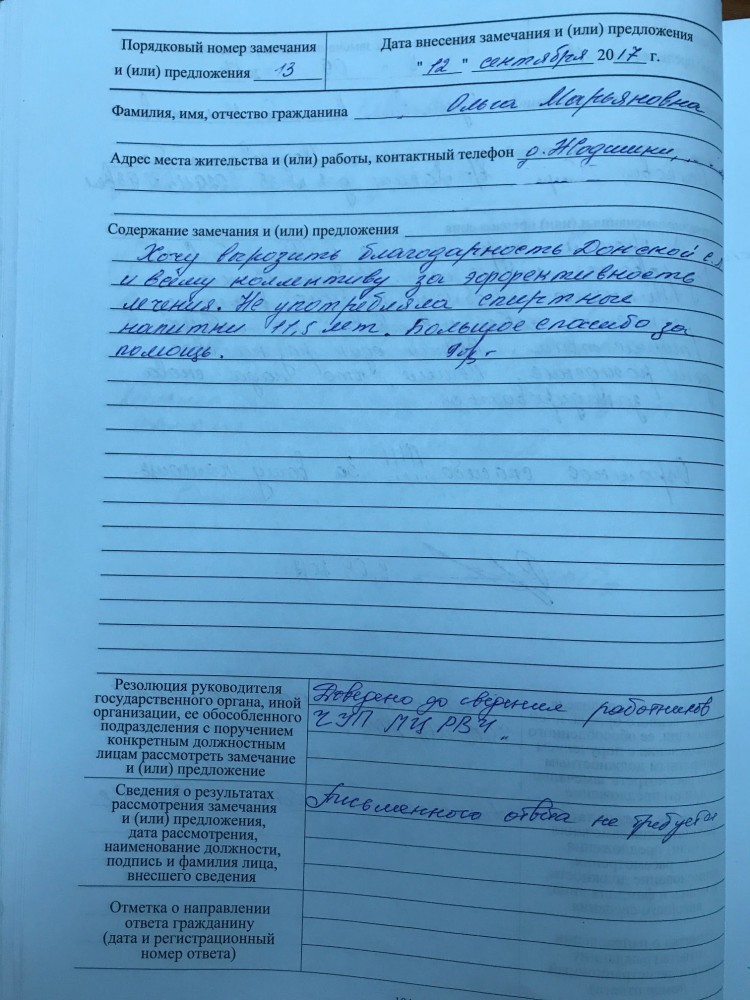 Порядковый номер замечания
и (или) предложения 13
Дата внесения замечания и (или) предложения
"12" сентября 2017 г.
Фамилия, имя, отчество гражданина Ольга Марьяновна
Адрес места жительства и (или) работы, контактный телефон д. Жодишки,
Содержание замечания и (или) предложения
Хочу вырозить благодарность Донской
и всему коллективу за эффективность
лечения. Не употребляла спиртные
напитки 11,5 лет. Большое спасибо за
помощь.
Резолюция руководителя
государственного органа, иной
организации, ее обособленного
подразделения с поручением
конкретным должностным
лицам рассмотреть замечание
и (или) предложение
Доведено до сведения работников
ЧУП МЦ РВЧ
Сведения о результатах
рассмотрения замечания
и (или) предложения,
дата рассмотрения,
наименование должности,
подпись и фамилия лица,
внесшего сведения
Письменного ответа не требует
Отметка о направлении
ответа гражданину
(дата и регистрационный
номер ответа)